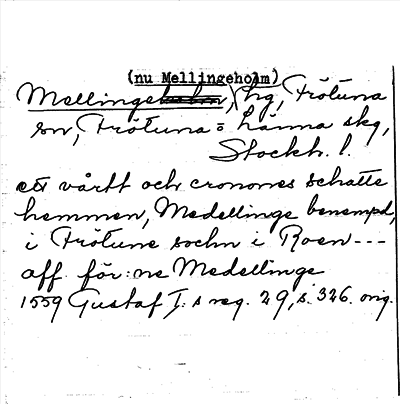 (nu Mellingeholm)
Mellingeholm, hg, Frötuna
sn, Frötuna = Länna skg,
Stockh. l.
ett vårtt och cronones schatte
hemmen, Medellinge benempd,
i Frötune sochn i Roen---
aff för:ne Medellinge
1559 Gustaf I:s reg. 29, s. 326. orig.